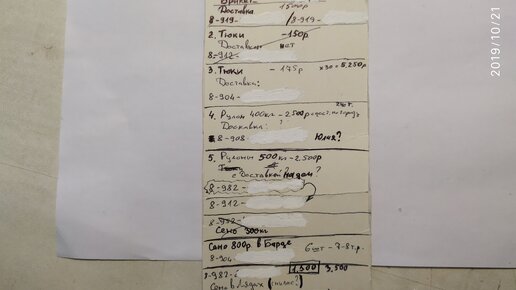 Брикет
Доставка 1500р
8-919- / 8-919-
2. Тюки - 150р
Доставка нет
8-912-
3. Тюки - 175р x30 = 5.250р
Доставка:
8-904-
4. Рулон 400кг - 2.500р
Доставка: ?
8-908- Юлия?
5. Рулоны 500кг - 2.500р
с доставкой На дом?
8-982-
8-912-
8-982-
Сено 300кг
Сено 800р в Барде 6 шт - 7-8т.р.
8-904-
8-982- 1.300 3.500
Сено в Лядах
2019/10/21